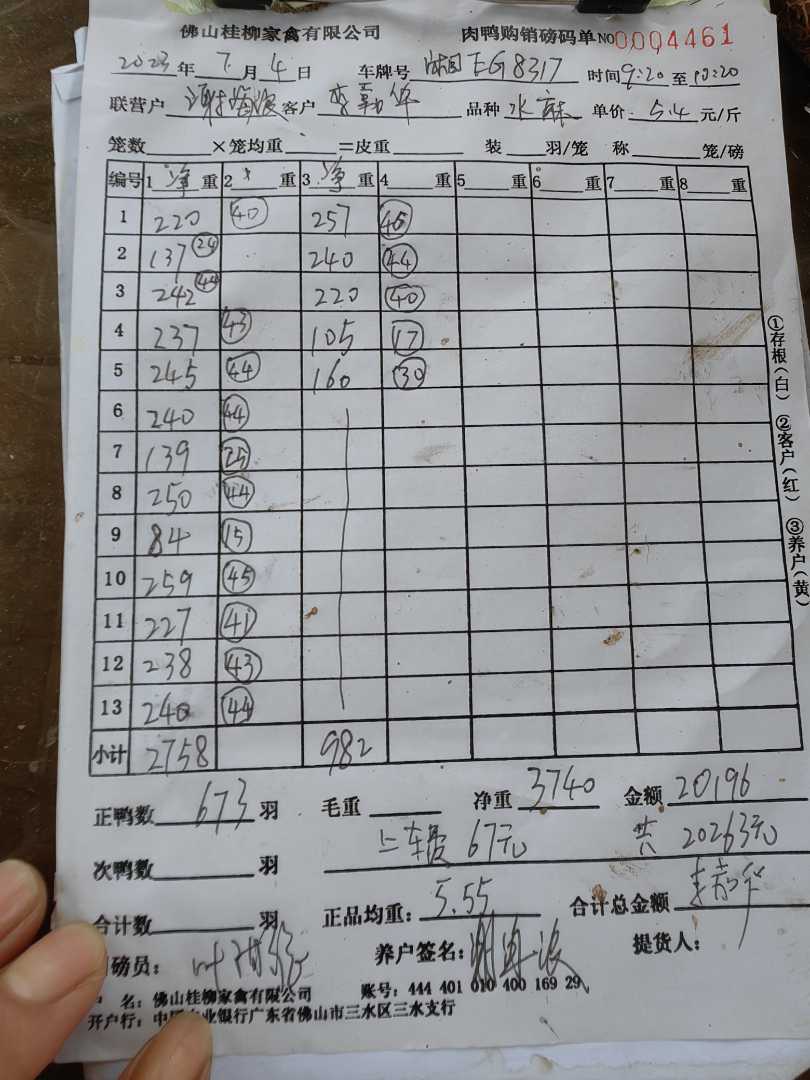 佛山桂柳家禽有限公司 肉鸭购销磅码单 NO 0004461
2023 年 7 月 4 日 车牌号 EG8317 时间 9:20 至 10:20
联营户 客户 李勤华 品种 水麻 单价 5.4 元/斤
笼数 ×笼均重 =皮重 装 羽/笼 称 笼/磅
编号 1 净 重 2 重 3 净 重 4 重 5 重 6 重 7 重 8 重
1 220 40 257 46
2 137 24 240 44
3 242 44 220 40
4 237 43 105 17
5 245 44 160 30
6 240 44
7 139 25
8 250 44
9 84 15
10 259 45
11 227 41
12 238 43
13 240 44
小计 2758 982
正鸭数 673 羽 毛重 净重 3740 金额 20196
上车费 67元 共 20263元
次鸭数 羽
合计数 羽 正品均重: 5.55 合计总金额
磅员: 养户签名: 提货人:
户 名: 佛山桂柳家禽有限公司 账号: 444 401 010 400 169 29
开户行: 中 业银行广东省佛山市三水区三水支行
①存根(白) ②客户(红) ③养户(黄)